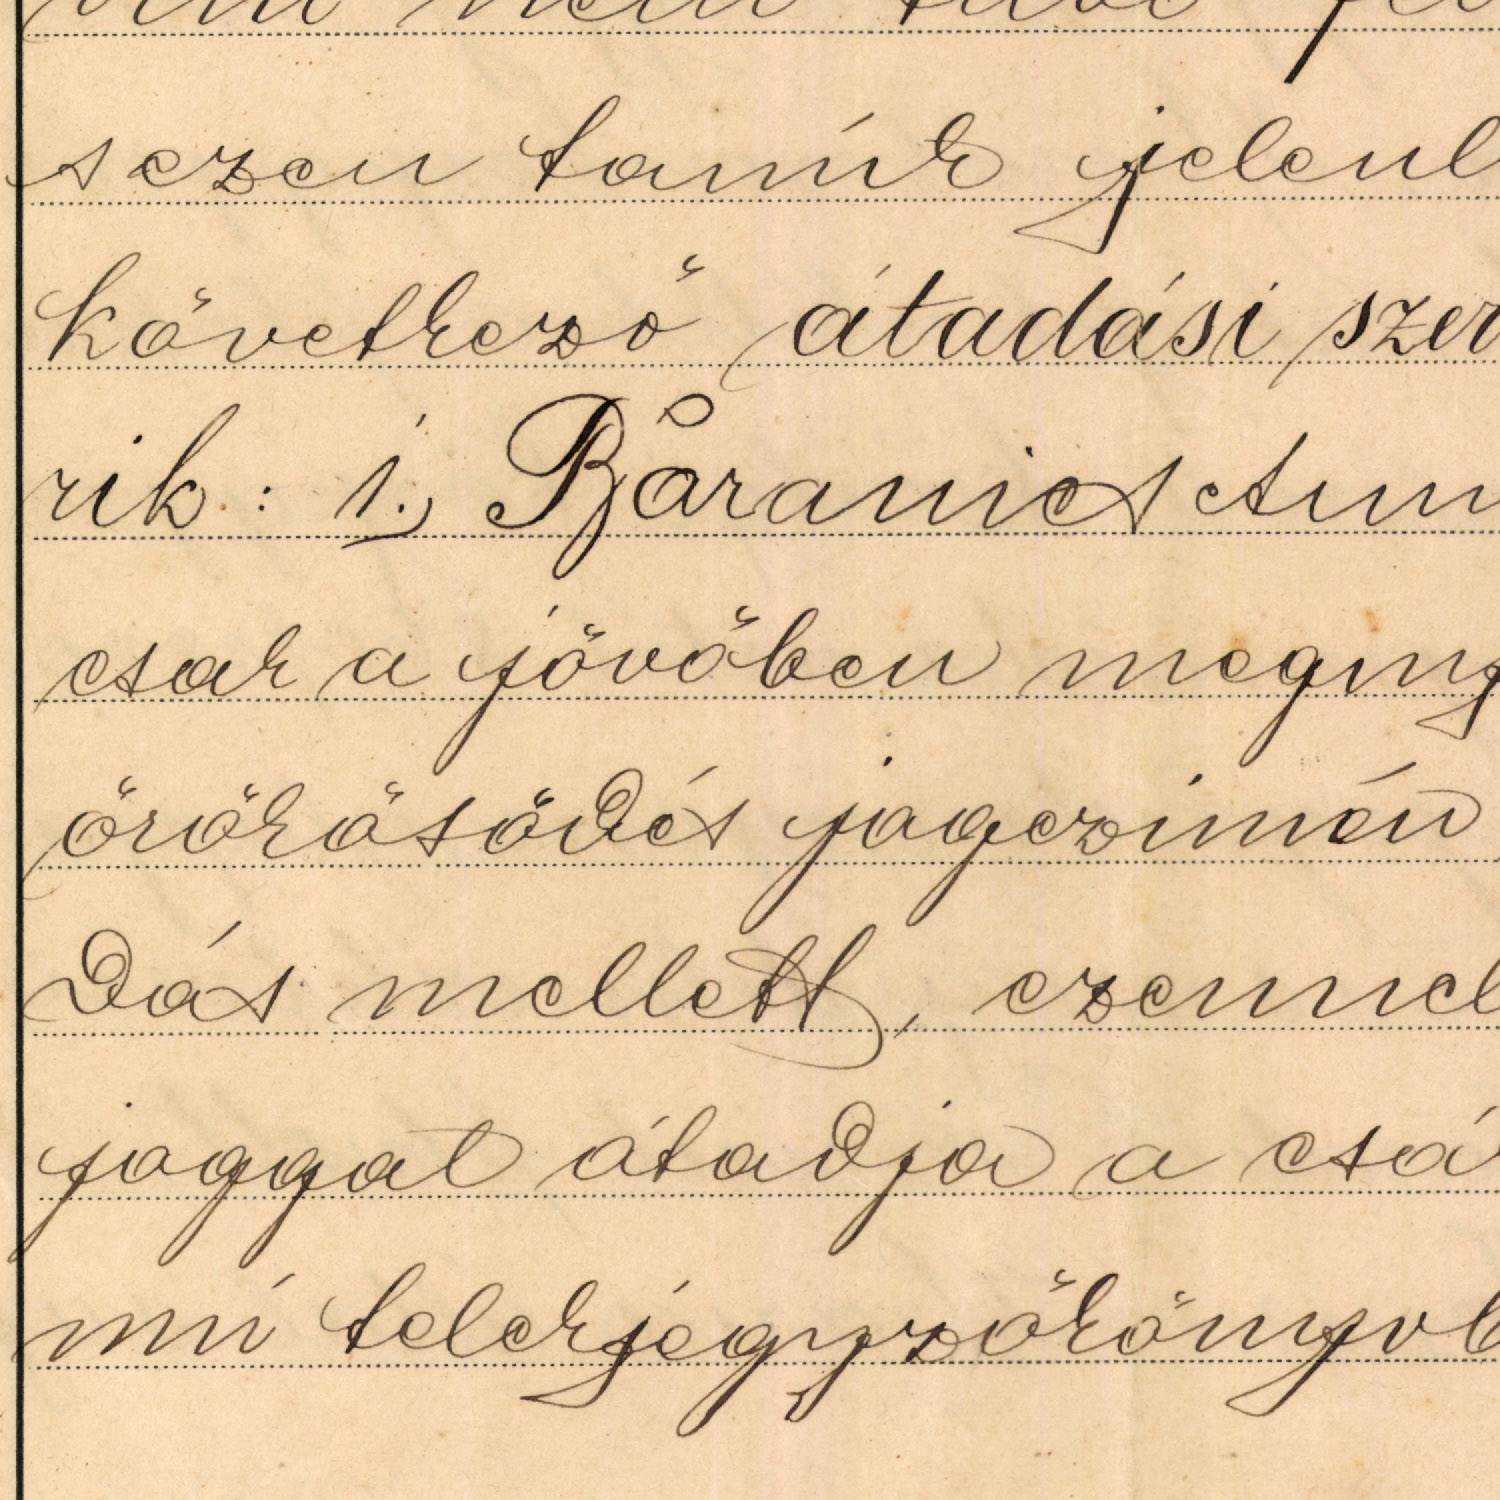 írni nem tudó fel
s ezen tanúk jelenl
következő átadási szer
rik: 1., Báranics Ann
csak a jövőben megny
örökösödés jogczimén
dás mellett, ezennel
joggal átadja a csá
mú telekjegyzőkönyvb